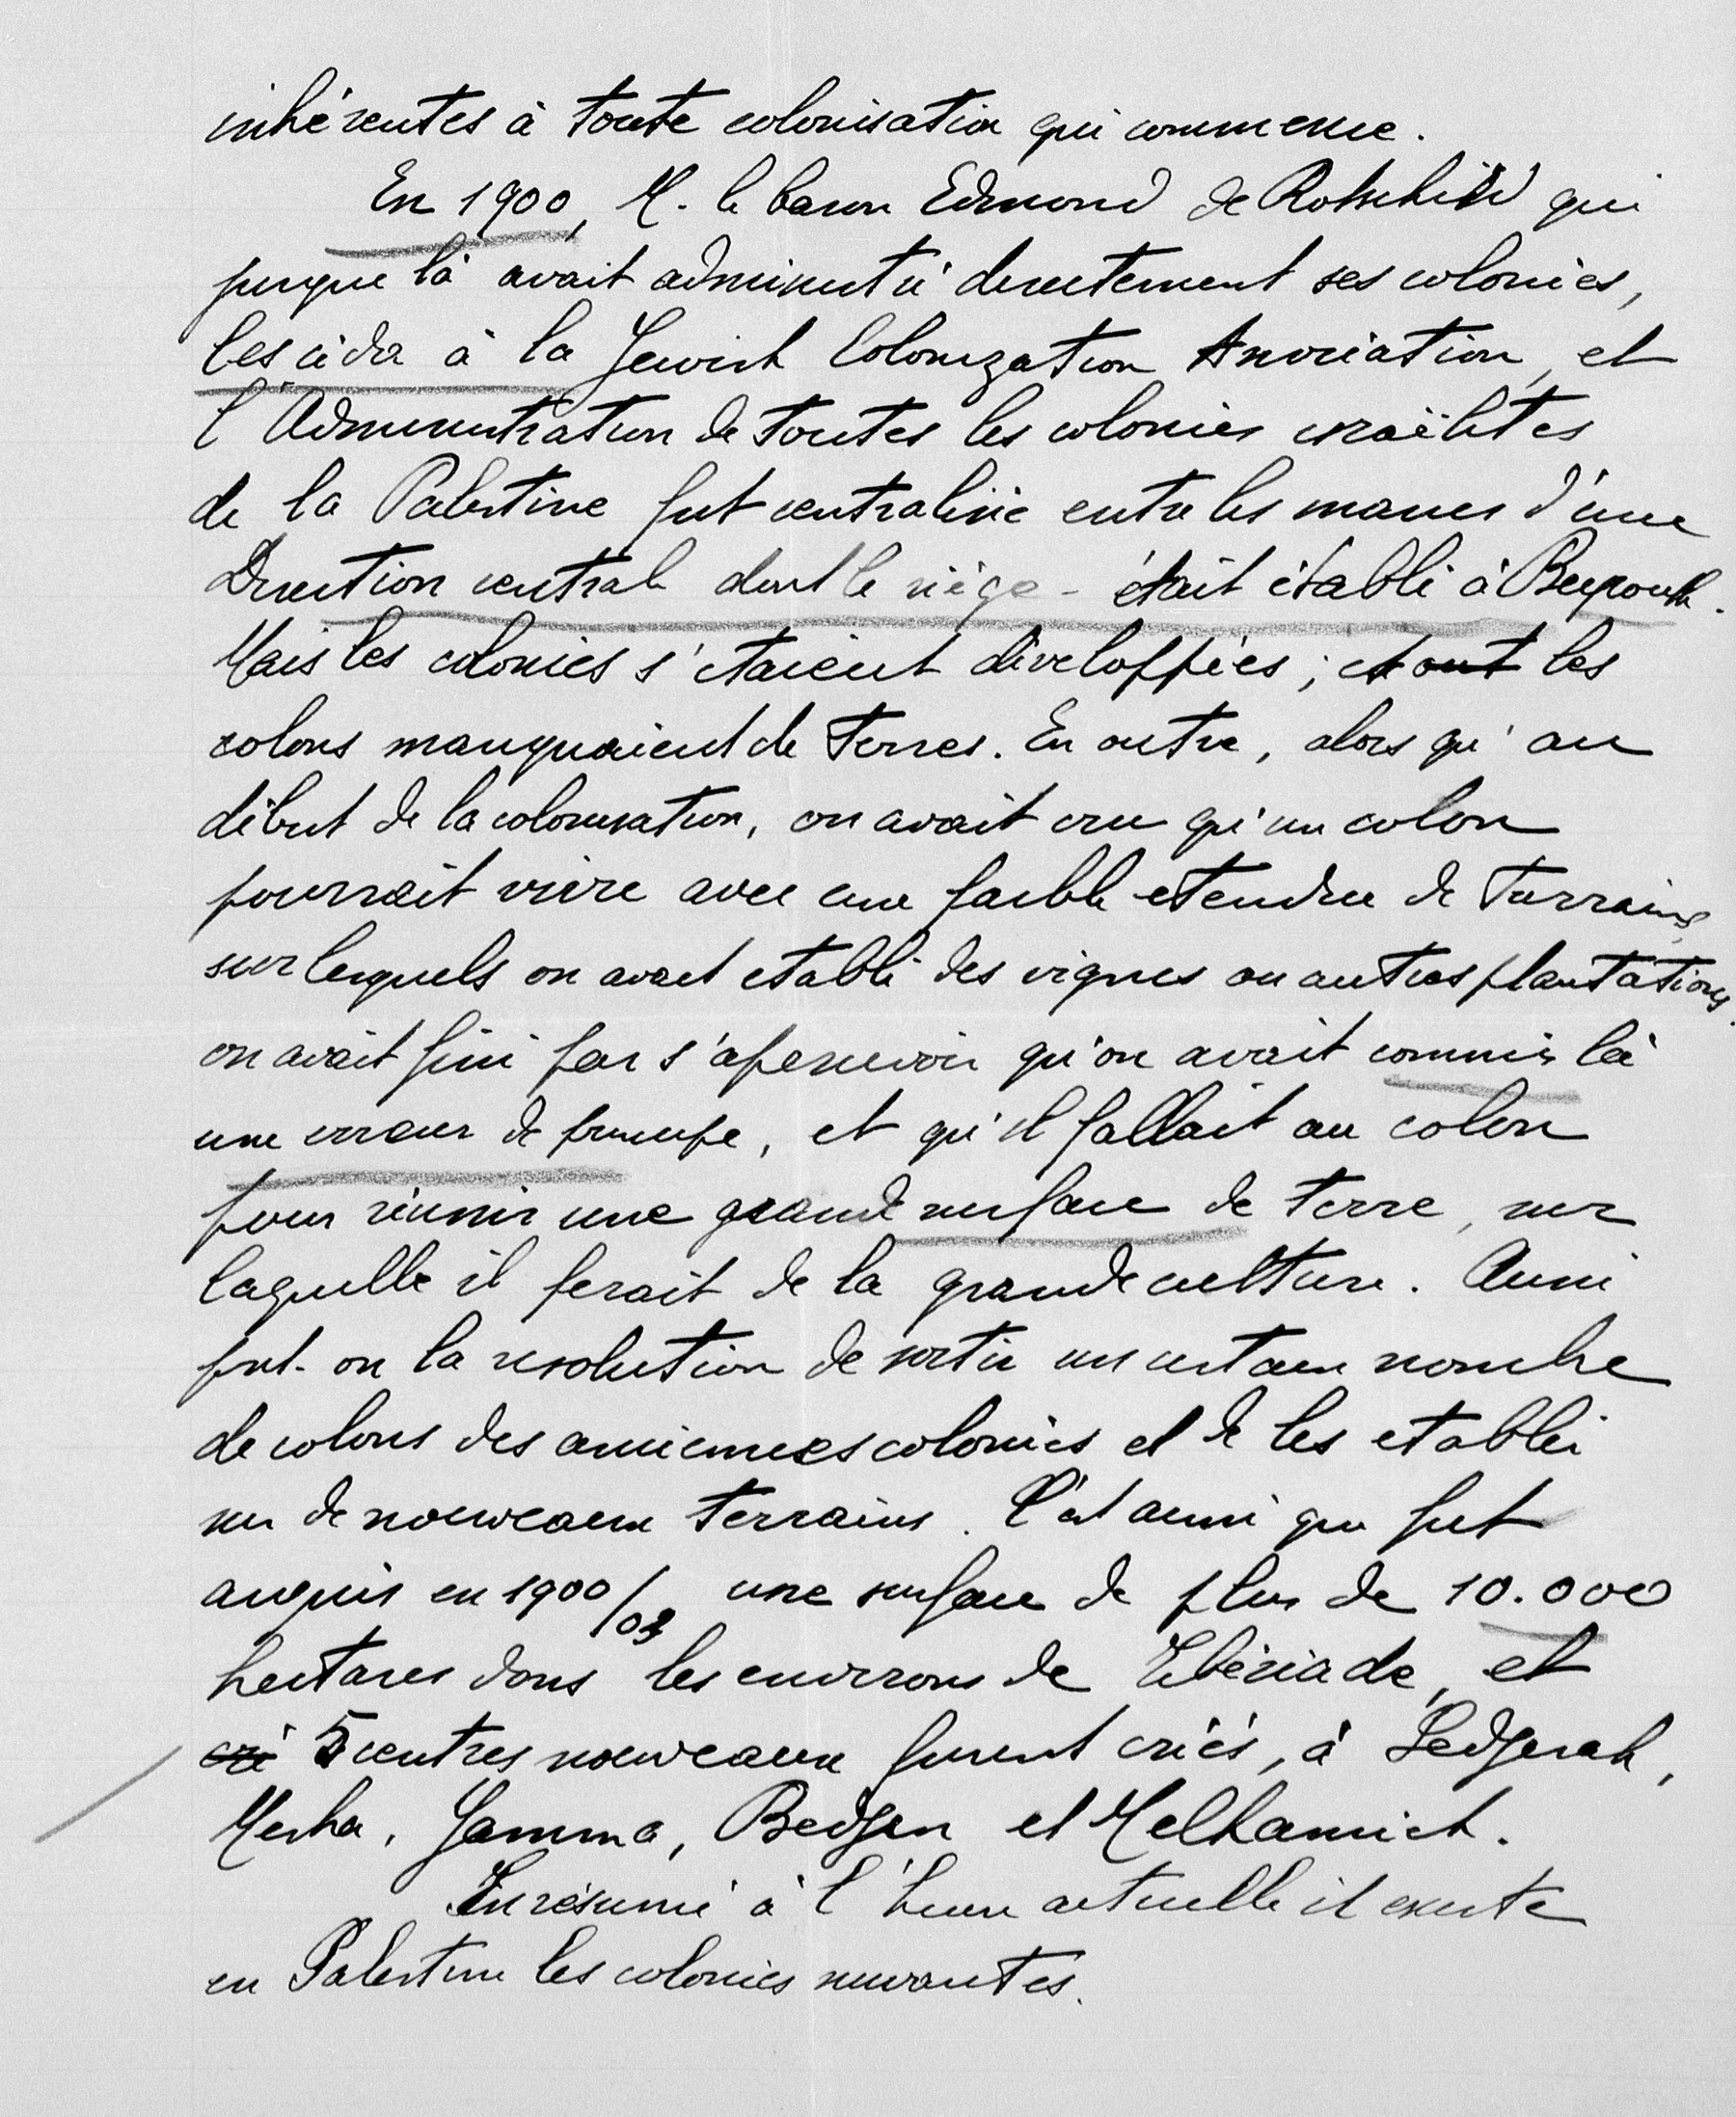 inhérentes à toute colonisation qui commence.
En 1900, M. le baron Edmond de Rotschild qui
jusque là avait administré directement ses colonies,
les céda à la Jewish Colonization Association, et
l'Administration de toutes les colonies israëlites
de la Palestine fut centralisée entre les mains d'une
Direction centrale dont le siège - était établi à Beyrouth.
Mais les colonies s'étaient développées ; et les
colons manquaient de terres. En outre, alors qu'au
début de la colonisation, on avait cru qu'un colon
pourrait vivre avec une faible etendue de terrains
sur lesquels on avait etabli des vignes ou autres plantations.
on avait fini par s'apercevoir qu'on avait commis là
une erreur de principe, et qu'il fallait au colon
pour réussir une grande surface de terre, sur
laquelle il ferait de la grande culture. Aussi
prit-on la resolution de sortir un certain nombre
de colons des anciennes colonies et de les etablir
sur de nouveaux terrains. C'est ainsi que fut
acquis en 1900/03 une surface de plus de 10.000
hectares dans les environs de Tibériade, et
cré 5 centres nouveaux furent créés, à Sedjerah,
Mesha, Jamma, Bedjen et Melhamieh.
En résumé à l'heure actuelle il existe
en Palestine les colonies suivantes.